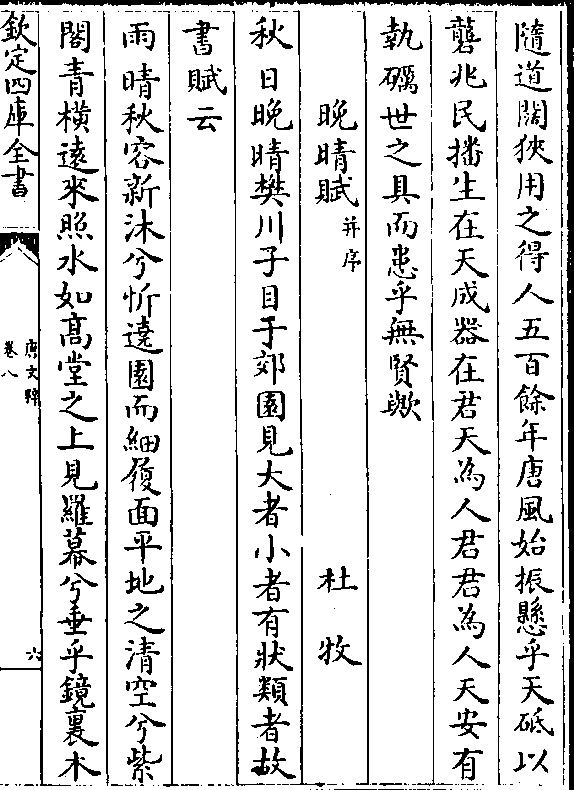 隨道闊狹用之得人五百餘年唐風始振懸乎天砥以
礱兆民播生在天成器在君天為人君君為人天安有
執礪世之具而患乎無賢歟
晚晴賦并序 杜牧
秋日晚晴樊川子目于郊園見大者小者有狀類者故
書賦云
雨晴秋容新沐兮忻遶園而細履面平地之清空兮紫
閣青橫遠來照水如高堂之上見羅幕兮垂乎鏡裏木
欽定四庫全書
唐文粹
卷八
六